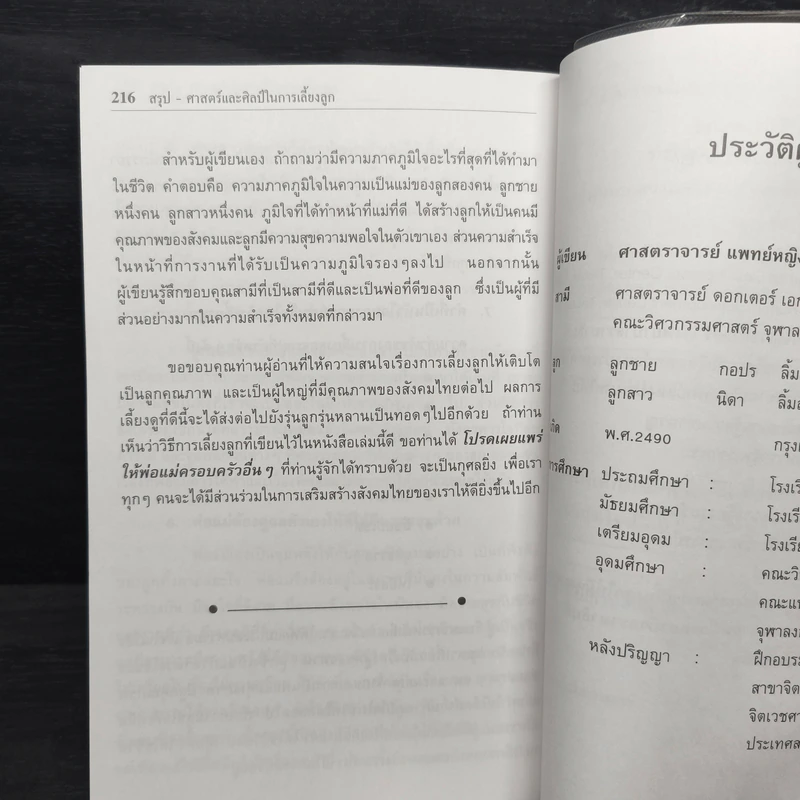 216 สรุป - ศาสตร์และศิลป์ในการเลี้ยงลูก
สำหรับผู้เขียนเอง ถ้าถามว่ามีความภาคภูมิใจอะไรที่สุดที่ได้ทำมา
ในชีวิต คำตอบคือ ความภาคภูมิใจในความเป็นแม่ของลูกสองคน ลูกชาย
หนึ่งคน ลูกสาวหนึ่งคน ภูมิใจที่ได้ทำหน้าที่แม่ที่ดี ได้สร้างลูกให้เป็นคนมี
คุณภาพของสังคมและลูกมีความสุขความพอใจในตัวเขาเอง ส่วนความสำเร็จ
ในหน้าที่การงานที่ได้รับเป็นความภูมิใจรองๆลงไป นอกจากนั้น
ผู้เขียนรู้สึกขอบคุณสามีที่เป็นสามีที่ดีและเป็นพ่อที่ดีของลูก ซึ่งเป็นผู้ที่มี
ส่วนอย่างมากในความสำเร็จทั้งหมดที่กล่าวมา
ขอขอบคุณท่านผู้อ่านที่ให้ความสนใจเรื่องการเลี้ยงลูกให้เติบโต
เป็นลูกคุณภาพ และเป็นผู้ใหญ่ที่มีคุณภาพของสังคมไทยต่อไป ผลการ
เลี้ยงดูที่ดีนี้จะได้ส่งต่อไปยังรุ่นลูกรุ่นหลานเป็นทอดๆไปอีกด้วย ถ้าท่าน
เห็นว่าวิธีการเลี้ยงลูกที่เขียนไว้ในหนังสือเล่มนี้ดี ขอท่านได้ โปรดเผยแพร่
ให้พ่อแม่ครอบครัวอื่นๆ ที่ท่านรู้จักได้ทราบด้วย จะเป็นกุศลยิ่ง เพื่อเรา
ทุกๆ คนจะได้มีส่วนร่วมในการเสริมสร้างสังคมไทยของเราให้ดียิ่งขึ้นไปอีก
ประวัติ
ผู้เขียน ศาสตราจารย์ แพทย์หญิง
สามี ศาสตราจารย์ ดอกเตอร์ เอก
คณะวิศวกรรมศาสตร์ จุฬาล
ลูก ลูกชาย กอปร ลิ้ม
ลูกสาว นิดา ลิ้ม
พ.ศ.2490 กรุง
การศึกษา ประถมศึกษา : โรงเรี
มัธยมศึกษา : โรงเรี
เตรียมอุดม : โรงเรีย
อุดมศึกษา : คณะวิ
คณะแพ
จุฬาลง
หลังปริญญา : ฝึกอบร
สาขาจิต
จิตเวชศา
ประเทศส